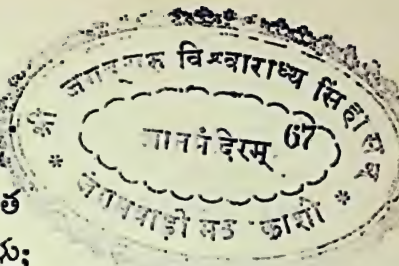 श्री जगद्गुरु विश्वाराध्य सिंहासन
ज्ञानमंदिरम्
67
जंगमवाडी मठ काशी